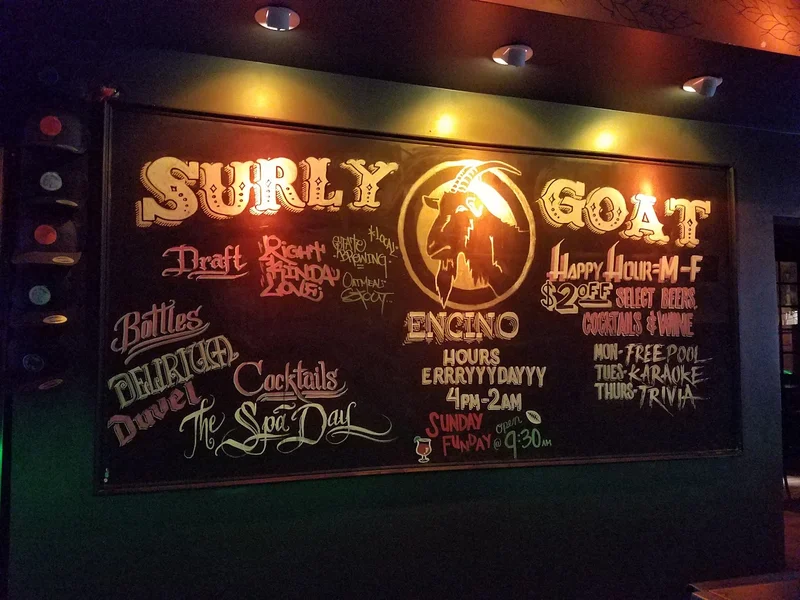 SURLY GOAT
Draft
RIGHT
KINDA
LOVE
BREWING
OATMEAL
Bottles
DELIRIUM
Duvel
Cocktails
The Spa Day
ENCINO
HOURS
ERRRYYYDAYYY
4PM-2AM
SUNDAY
FUNDAY
open
@ 9:30 AM
HAPPY HOUR=M-F
$2 OFF SELECT BEERS
COCKTAILS & WINE
MON-FREE POOL
TUES-KARAOKE
THURS-TRIVIA